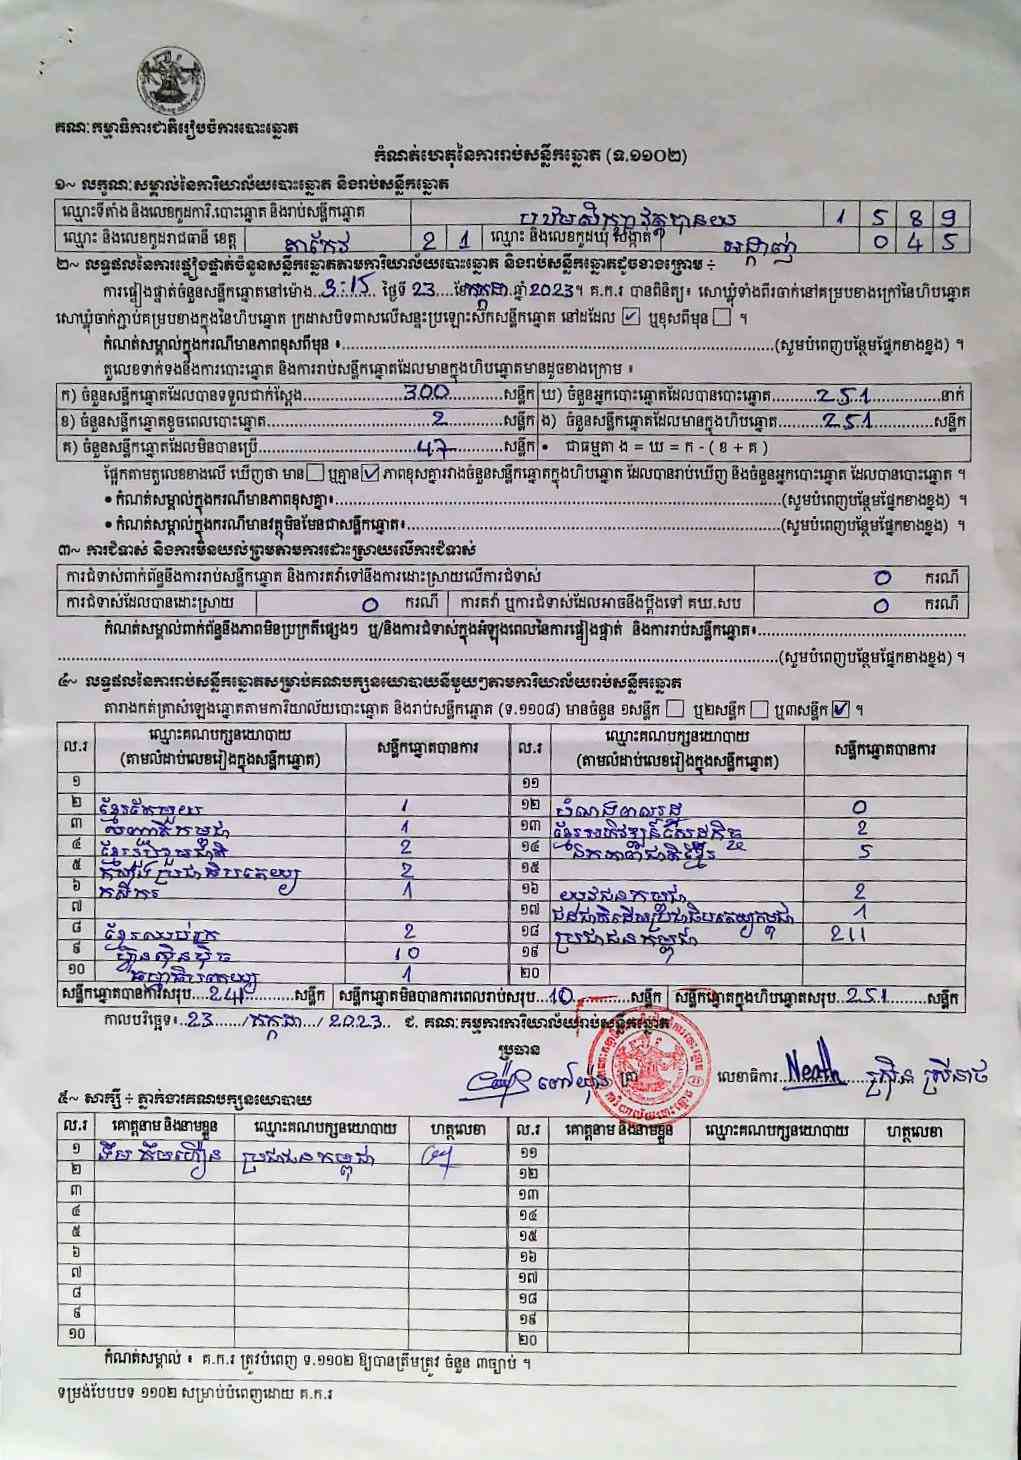 គណៈកម្មាធិការជាតិរៀបចំការបោះឆ្នោត
កំណត់ហេតុនៃការរាប់សន្លឹកឆ្នោត (ទ.១១០២)
១~ លក្ខណៈសម្គាល់នៃការិយាល័យបោះឆ្នោត និងរាប់សន្លឹកឆ្នោត
ឈ្មោះទីតាំង និងលេខកូដការិ.បោះឆ្នោត និងរាប់សន្លឹកឆ្នោត 1 5 8 9
ឈ្មោះ និងលេខកូដរាជធានី ខេត្ត តាកែវ 2 1 ឈ្មោះ និងលេខកូដឃុំ សង្កាត់ អង្កាញ់ 0 4 5
២~ លទ្ធផលនៃការផ្ទៀងផ្ទាត់ចំនួនសន្លឹកឆ្នោតតាមការិយាល័យបោះឆ្នោត និងរាប់សន្លឹកឆ្នោតដូចខាងក្រោម ÷
ការផ្ទៀងផ្ទាត់ចំនួនសន្លឹកឆ្នោតនៅម៉ោង 3:15 ថ្ងៃទី 23 ខែកក្កដា ឆ្នាំ 2023។ គ.ក.រ បានពិនិត្យ៖ សោឃ្លុំទាំងពីរចាក់នៅគម្របខាងក្រៅនៃហិបឆ្នោត
សោឃ្លុំចាក់ភ្ជាប់គម្របខាងក្នុងនៃហិបឆ្នោត ក្រដាសបិទពាសលើសន្ទះប្រឡោះសៀតសន្លឹកឆ្នោត នៅដដែល ☑ ឬខុសពីមុន ☐ ។
កំណត់សម្គាល់ក្នុងករណីមានភាពខុសពីមុន ៖ (សូមបំពេញបន្ថែមផ្នែកខាងខ្នង) ។
តួលេខទាក់ទងនឹងការបោះឆ្នោត និងការរាប់សន្លឹកឆ្នោតដែលមានក្នុងហិបឆ្នោតមានដូចខាងក្រោម ៖
ក) ចំនួនសន្លឹកឆ្នោតដែលបានទទួលជាក់ស្តែង 300 សន្លឹក ឃ) ចំនួនអ្នកបោះឆ្នោតដែលបានបោះឆ្នោត 251 នាក់
ខ) ចំនួនសន្លឹកឆ្នោតខូចពេលបោះឆ្នោត 2 សន្លឹក ង) ចំនួនសន្លឹកឆ្នោតដែលមានក្នុងហិបឆ្នោត 251 សន្លឹក
គ) ចំនួនសន្លឹកឆ្នោតដែលមិនបានប្រើ 47 សន្លឹក • ជាធម្មតា ង = ឃ = ក - ( ខ + គ )
ផ្អែកតាមតួលេខខាងលើ ឃើញថា មាន ☐ ឬគ្មាន ☑ ភាពខុសគ្នារវាងចំនួនសន្លឹកឆ្នោតក្នុងហិបឆ្នោត ដែលបានរាប់ឃើញ និងចំនួនអ្នកបោះឆ្នោត ដែលបានបោះឆ្នោត ។
• កំណត់សម្គាល់ក្នុងករណីមានភាពខុសគ្នា៖ (សូមបំពេញបន្ថែមផ្នែកខាងខ្នង) ។
• កំណត់សម្គាល់ក្នុងករណីមានវត្ថុមិនមែនជាសន្លឹកឆ្នោត៖ (សូមបំពេញបន្ថែមផ្នែកខាងខ្នង) ។
៣~ ការជំទាស់ និងការមិនយល់ព្រមតាមការដោះស្រាយលើការជំទាស់
ការជំទាស់ពាក់ព័ន្ធនឹងការរាប់សន្លឹកឆ្នោត និងការតវ៉ាទៅនឹងការដោះស្រាយលើការជំទាស់ 0 ករណី
ការជំទាស់ដែលបានដោះស្រាយ 0 ករណី ការតវ៉ា ឬការជំទាស់ដែលអាចនឹងប្តឹងទៅ គឃ.សប 0 ករណី
កំណត់សម្គាល់ពាក់ព័ន្ធនឹងភាពមិនប្រក្រតីផ្សេងៗ ឬ/និងការជំទាស់ក្នុងអំឡុងពេលនៃការផ្ទៀងផ្ទាត់ និងការរាប់សន្លឹកឆ្នោត៖
(សូមបំពេញបន្ថែមផ្នែកខាងខ្នង) ។
៤~ លទ្ធផលនៃការរាប់សន្លឹកឆ្នោតសម្រាប់គណបក្សនយោបាយនីមួយៗតាមការិយាល័យរាប់សន្លឹកឆ្នោត
តារាងកត់ត្រាសំឡេងឆ្នោតតាមការិយាល័យបោះឆ្នោត និងរាប់សន្លឹកឆ្នោត (ទ.១១០៨) មានចំនួន ១សន្លឹក ☐ ឬ២សន្លឹក ☐ ឬ៣សន្លឹក ☑ ។
ល.រ ឈ្មោះគណបក្សនយោបាយ (តាមលំដាប់លេខរៀងក្នុងសន្លឹកឆ្នោត) សន្លឹកឆ្នោតបានការ ល.រ ឈ្មោះគណបក្សនយោបាយ (តាមលំដាប់លេខរៀងក្នុងសន្លឹកឆ្នោត) សន្លឹកឆ្នោតបានការ
១ ១១
២ ខ្មែរតែមួយ 1 ១២ សំណងបាលរដ្ឋ 0
៣ សញ្ជាតិកម្ពុជា 1 ១៣ ខ្មែរអភិវឌ្ឍន៍សេដ្ឋកិច្ច 2
៤ ខ្មែររួបរួមជាតិ 2 ១៤ ឯកភាពជាតិខ្មែរ 5
៥ កម្លាំងប្រជាធិបតេយ្យ 2 ១៥
៦ កសិករ 1 ១៦ យុវជនកម្ពុជា 2
៧ ១៧ ជនជាតិដើមប្រជាធិបតេយ្យកម្ពុជា 1
៨ ខ្មែរឈប់ក្រ 2 ១៨ ប្រជាជនកម្ពុជា 211
៩ ហ្វ៊ុនស៊ិនប៉ិច 10 ១៩
១០ ធម្មាធិបតេយ្យ 1 ២០
សន្លឹកឆ្នោតបានការសរុប 241 សន្លឹក សន្លឹកឆ្នោតមិនបានការពេលរាប់សរុប 10 សន្លឹក សន្លឹកឆ្នោតក្នុងហិបឆ្នោតសរុប 251 សន្លឹក
កាលបរិច្ឆេទ៖ 23 / កក្កដា / 2023 ជ. គណៈកម្មការការិយាល័យរាប់សន្លឹកឆ្នោត
ប្រធាន
លេខាធិការ Neath ស្រ៊ិន ស្រីនាថ
៥~ សាក្សី ÷ ភ្នាក់ងារគណបក្សនយោបាយ
ល.រ គោត្តនាម និងនាមខ្លួន ឈ្មោះគណបក្សនយោបាយ ហត្ថលេខា ល.រ គោត្តនាម និងនាមខ្លួន ឈ្មោះគណបក្សនយោបាយ ហត្ថលេខា
១ ប្រជាជនកម្ពុជា ១១
២ ១២
៣ ១៣
៤ ១៤
៥ ១៥
៦ ១៦
៧ ១៧
៨ ១៨
៩ ១៩
១០ ២០
កំណត់សម្គាល់ ៖ គ.ក.រ ត្រូវបំពេញ ទ.១១០២ ឱ្យបានត្រឹមត្រូវ ចំនួន ៣ច្បាប់ ។
ទម្រង់បែបបទ ១១០២ សម្រាប់បំពេញដោយ គ.ក.រ